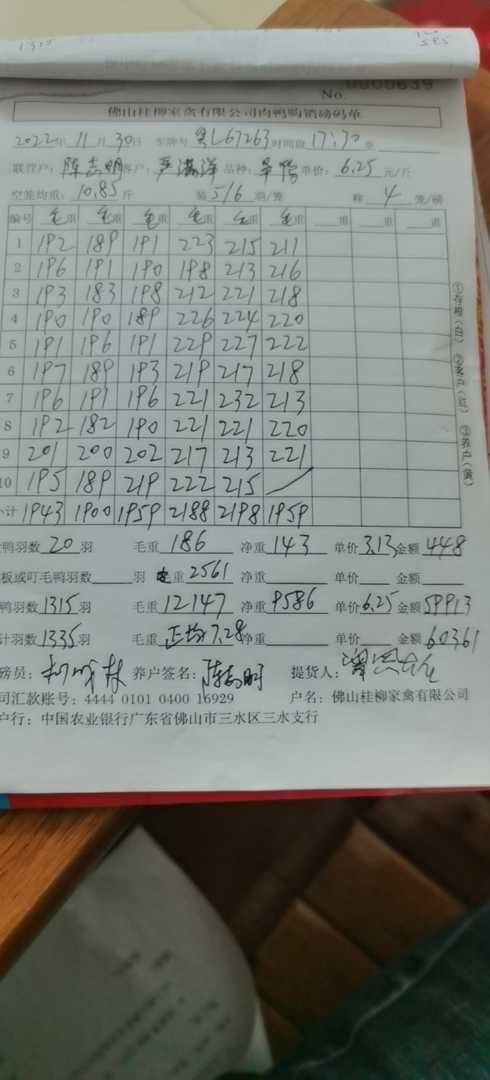 No. 0000639
佛山桂柳家禽有限公司肉鸭购销磅码单
2022年11月30日 车牌号 粤L67263 时间段 17:30至
联营户：陈志明 客户：严满洋 品种：单价：6.25元/斤
空笼均重：10.85斤 装5/6羽/笼 称4笼/磅
编号 毛重 毛重 毛重 毛重 毛重 毛重 重 重 重
1 192 189 191 223 215 211
2 196 191 190 198 213 216
3 193 183 198 212 221 218
4 190 190 189 226 224 220
5 191 196 191 229 227 222
6 197 189 193 219 217 218
7 196 191 196 221 232 213
8 192 182 190 221 221 220
9 201 200 202 217 213 221
10 195 189 219 222 215
计 1943 1900 1959 2188 2198 1959
鸭羽数20羽 毛重186 净重143 单价3.13金额448
板或叮毛鸭羽数 羽 重2561 净重 单价 金额
鸭羽数1315羽 毛重12147 净重9586 单价6.25金额59913
计羽数1335羽 毛重正均7.28净重 单价 金额60361
磅员： 养户签名：陈志明 提货人：
司汇款账号：4444 0101 0400 16929 户名：佛山桂柳家禽有限公司
户行：中国农业银行广东省佛山市三水区三水支行
①存根（白） ②客户（红） ③养户（黄）